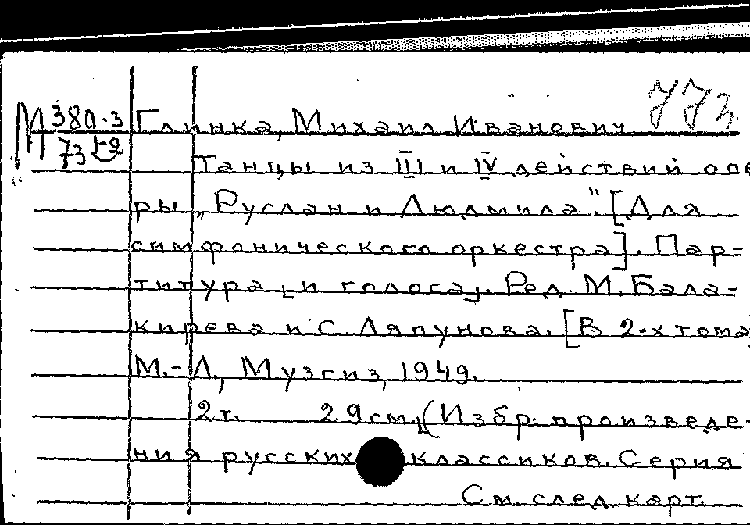 М 380-3 Глинка, Михаил Иванович 773
73 1-2
Танцы из III и IV действий опе
ры „Руслан и Людмила". [Для
симфонического оркестра]. Пар-
титура [и голоса]. Ред. М. Бала-
кирева и С. Ляпунова. [В 2-х тома
М.-Л., Музгиз, 1949.
2 т. 29 см. (Избр. произведе-
ния русских классиков. Серия
См. след. карт.